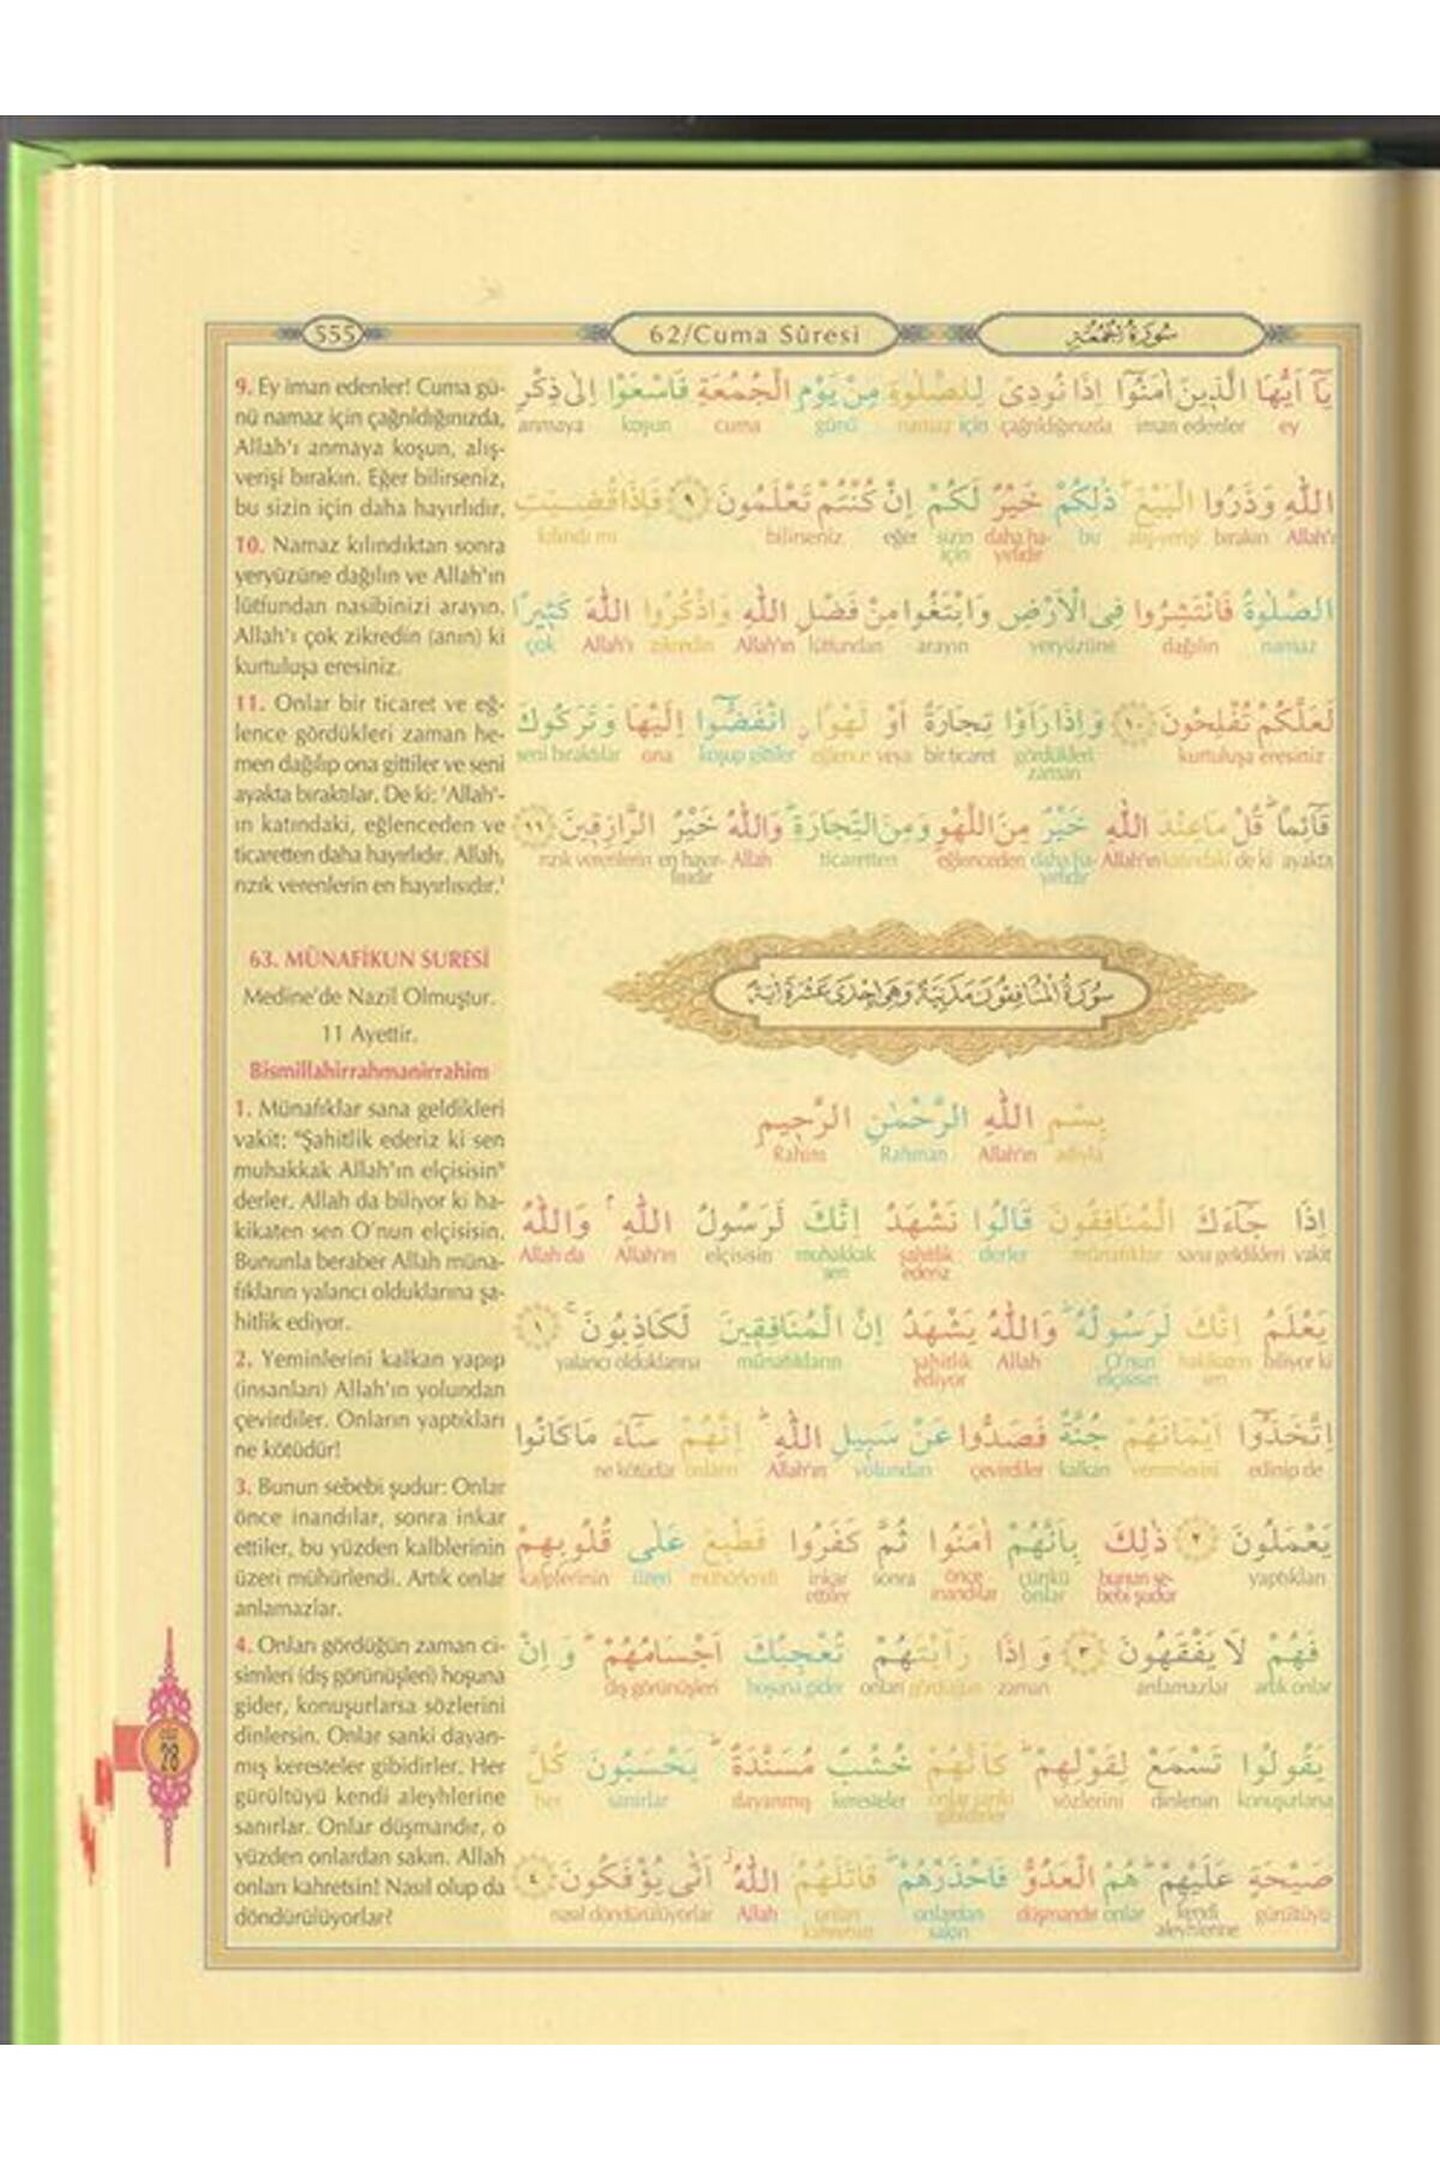 555
62/Cuma Sûresi
سُورَةُ الْجُمُعَةِ
9. Ey iman edenler! Cuma gü-
nü namaz için çağrıldığınızda,
Allah'ı anmaya koşun, alış-
verişi bırakın. Eğer bilirseniz,
bu sizin için daha hayırlıdır.
10. Namaz kılındıktan sonra
yeryüzüne dağılın ve Allah'ın
lütfundan nasibinizi arayın.
Allah'ı çok zikredin (anın) ki
kurtuluşa eresiniz.
11. Onlar bir ticaret ve eğ-
lence gördükleri zaman he-
men dağılıp ona gittiler ve seni
ayakta bıraktılar. De ki: 'Allah'-
ın katındaki, eğlenceden ve
ticaretten daha hayırlıdır. Allah,
rızık verenlerin en hayırlısıdır.'
63. MÜNAFİKUN SURESİ
Medine'de Nazil Olmuştur.
11 Ayettir.
Bismillahirrahmanirrahim
1. Münafıklar sana geldikleri
vakit: "Şahitlik ederiz ki sen
muhakkak Allah'ın elçisisin"
derler. Allah da biliyor ki ha-
kikaten sen O'nun elçisisin.
Bununla beraber Allah müna-
fıkların yalancı olduklarına şa-
hitlik ediyor.
2. Yeminlerini kalkan yapıp
(insanları) Allah'ın yolundan
çevirdiler. Onların yaptıkları
ne kötüdür!
3. Bunun sebebi şudur: Onlar
önce inandılar, sonra inkar
ettiler, bu yüzden kalblerinin
üzeri mühürlendi. Artık onlar
anlamazlar.
4. Onları gördüğün zaman ci-
simleri (dış görünüşleri) hoşuna
gider, konuşurlarsa sözlerini
dinlersin. Onlar sanki dayan-
mış keresteler gibidirler. Her
gürültüyü kendi aleyhlerine
sanırlar. Onlar düşmandır, o
yüzden onlardan sakın. Allah
onları kahretsin! Nasıl olup da
döndürülüyorlar?
يَٓا اَيُّهَا الَّذ۪ينَ اٰمَنُٓوا اِذَا نُودِيَ لِلصَّلٰوةِ مِنْ يَوْمِ الْجُمُعَةِ فَاسْعَوْا اِلٰى ذِكْرِ
ey iman edenler çağrıldığınızda namaz için günü cuma koşun anmaya
اللّٰهِ وَذَرُوا الْبَيْعَۜ ذٰلِكُمْ خَيْرٌ لَكُمْ اِنْ كُنْتُمْ تَعْلَمُونَ ﴿٩﴾ فَاِذَا قُضِيَتِ
Allah'ı bırakın alış-verişi bu daha ha- sizin eğer bilirseniz kılındı mı
yırlıdır için
الصَّلٰوةُ فَانْتَشِرُوا فِي الْاَرْضِ وَابْتَغُوا مِنْ فَضْلِ اللّٰهِ وَاذْكُرُوا اللّٰهَ كَث۪يرًا
namaz dağılın yeryüzüne arayın lütfundan Allah'ın zikredin Allah'ı çok
لَعَلَّكُمْ تُفْلِحُونَ ﴿١٠﴾ وَاِذَا رَاَوْا تِجَارَةً اَوْ لَهْوًاۨ انْفَضُّٓوا اِلَيْهَا وَتَرَكُوكَ
kurtuluşa eresiniz gördükleri bir ticaret veya eğlence koşup gittiler ona seni bıraktılar
zaman
قَٓائِمًاۜ قُلْ مَا عِنْدَ اللّٰهِ خَيْرٌ مِنَ اللَّهْوِ وَمِنَ التِّجَارَةِۜ وَاللّٰهُ خَيْرُ الرَّازِق۪ينَ ﴿١١﴾
ayakta de ki katındaki Allah'ın daha ha- eğlenceden ticaretten Allah en hayır- rızık verenlerin
yırlıdır lısıdır
سُورَةُ الْمُنَافِقُونَ مَدَنِيَّةٌ وَهِيَ اِحْدٰى عَشْرَةَ اٰيَةً
بِسْمِ اللّٰهِ الرَّحْمٰنِ الرَّح۪يمِ
adıyla Allah'ın Rahman Rahim
اِذَا جَٓاءَكَ الْمُنَافِقُونَ قَالُوا نَشْهَدُ اِنَّكَ لَرَسُولُ اللّٰهِۢ وَاللّٰهُ
vakit sana geldikleri münafıklar derler şahitlik muhakkak elçisisin Allah'ın Allah da
ederiz sen
يَعْلَمُ اِنَّكَ لَرَسُولُهُۜ وَاللّٰهُ يَشْهَدُ اِنَّ الْمُنَافِق۪ينَ لَكَاذِبُونَۚ ﴿١﴾
biliyor ki hakikaten O'nun Allah şahitlik münafıkların yalancı olduklarına
sen elçisisin ediyor
اِتَّخَذُٓوا اَيْمَانَهُمْ جُنَّةً فَصَدُّوا عَنْ سَب۪يلِ اللّٰهِۜ اِنَّهُمْ سَٓاءَ مَا كَانُوا
edinip de yeminlerini kalkan çevirdiler yolundan Allah'ın onların ne kötüdür
يَعْمَلُونَ ﴿٢﴾ ذٰلِكَ بِاَنَّهُمْ اٰمَنُوا ثُمَّ كَفَرُوا فَطُبِعَ عَلٰى قُلُوبِهِمْ
yaptıkları bunun se- çünkü önce sonra inkar mühürlendi üzeri kalplerinin
bebi şudur onlar inandılar ettiler
فَهُمْ لَا يَفْقَهُونَ ﴿٣﴾ وَاِذَا رَاَيْتَهُمْ تُعْجِبُكَ اَجْسَامُهُمْۜ وَاِنْ
artık onlar anlamazlar zaman gördüğün onları hoşuna gider dış görünüşleri
يَقُولُوا تَسْمَعْ لِقَوْلِهِمْۜ كَاَنَّهُمْ خُشُبٌ مُسَنَّدَةٌۜ يَحْسَبُونَ كُلَّ
konuşurlarsa dinlersin sözlerini onlar sanki keresteler dayanmış sanırlar her
gibidirler
صَيْحَةٍ عَلَيْهِمْۜ هُمُ الْعَدُوُّ فَاحْذَرْهُمْۜ قَاتَلَهُمُ اللّٰهُۘ اَنّٰى يُؤْفَكُونَ ﴿٤﴾
gürültüyü kendi onlar düşmandır onlardan onları Allah nasıl döndürülüyorlar
aleyhlerine sakın kahretsin
CÜZ
28